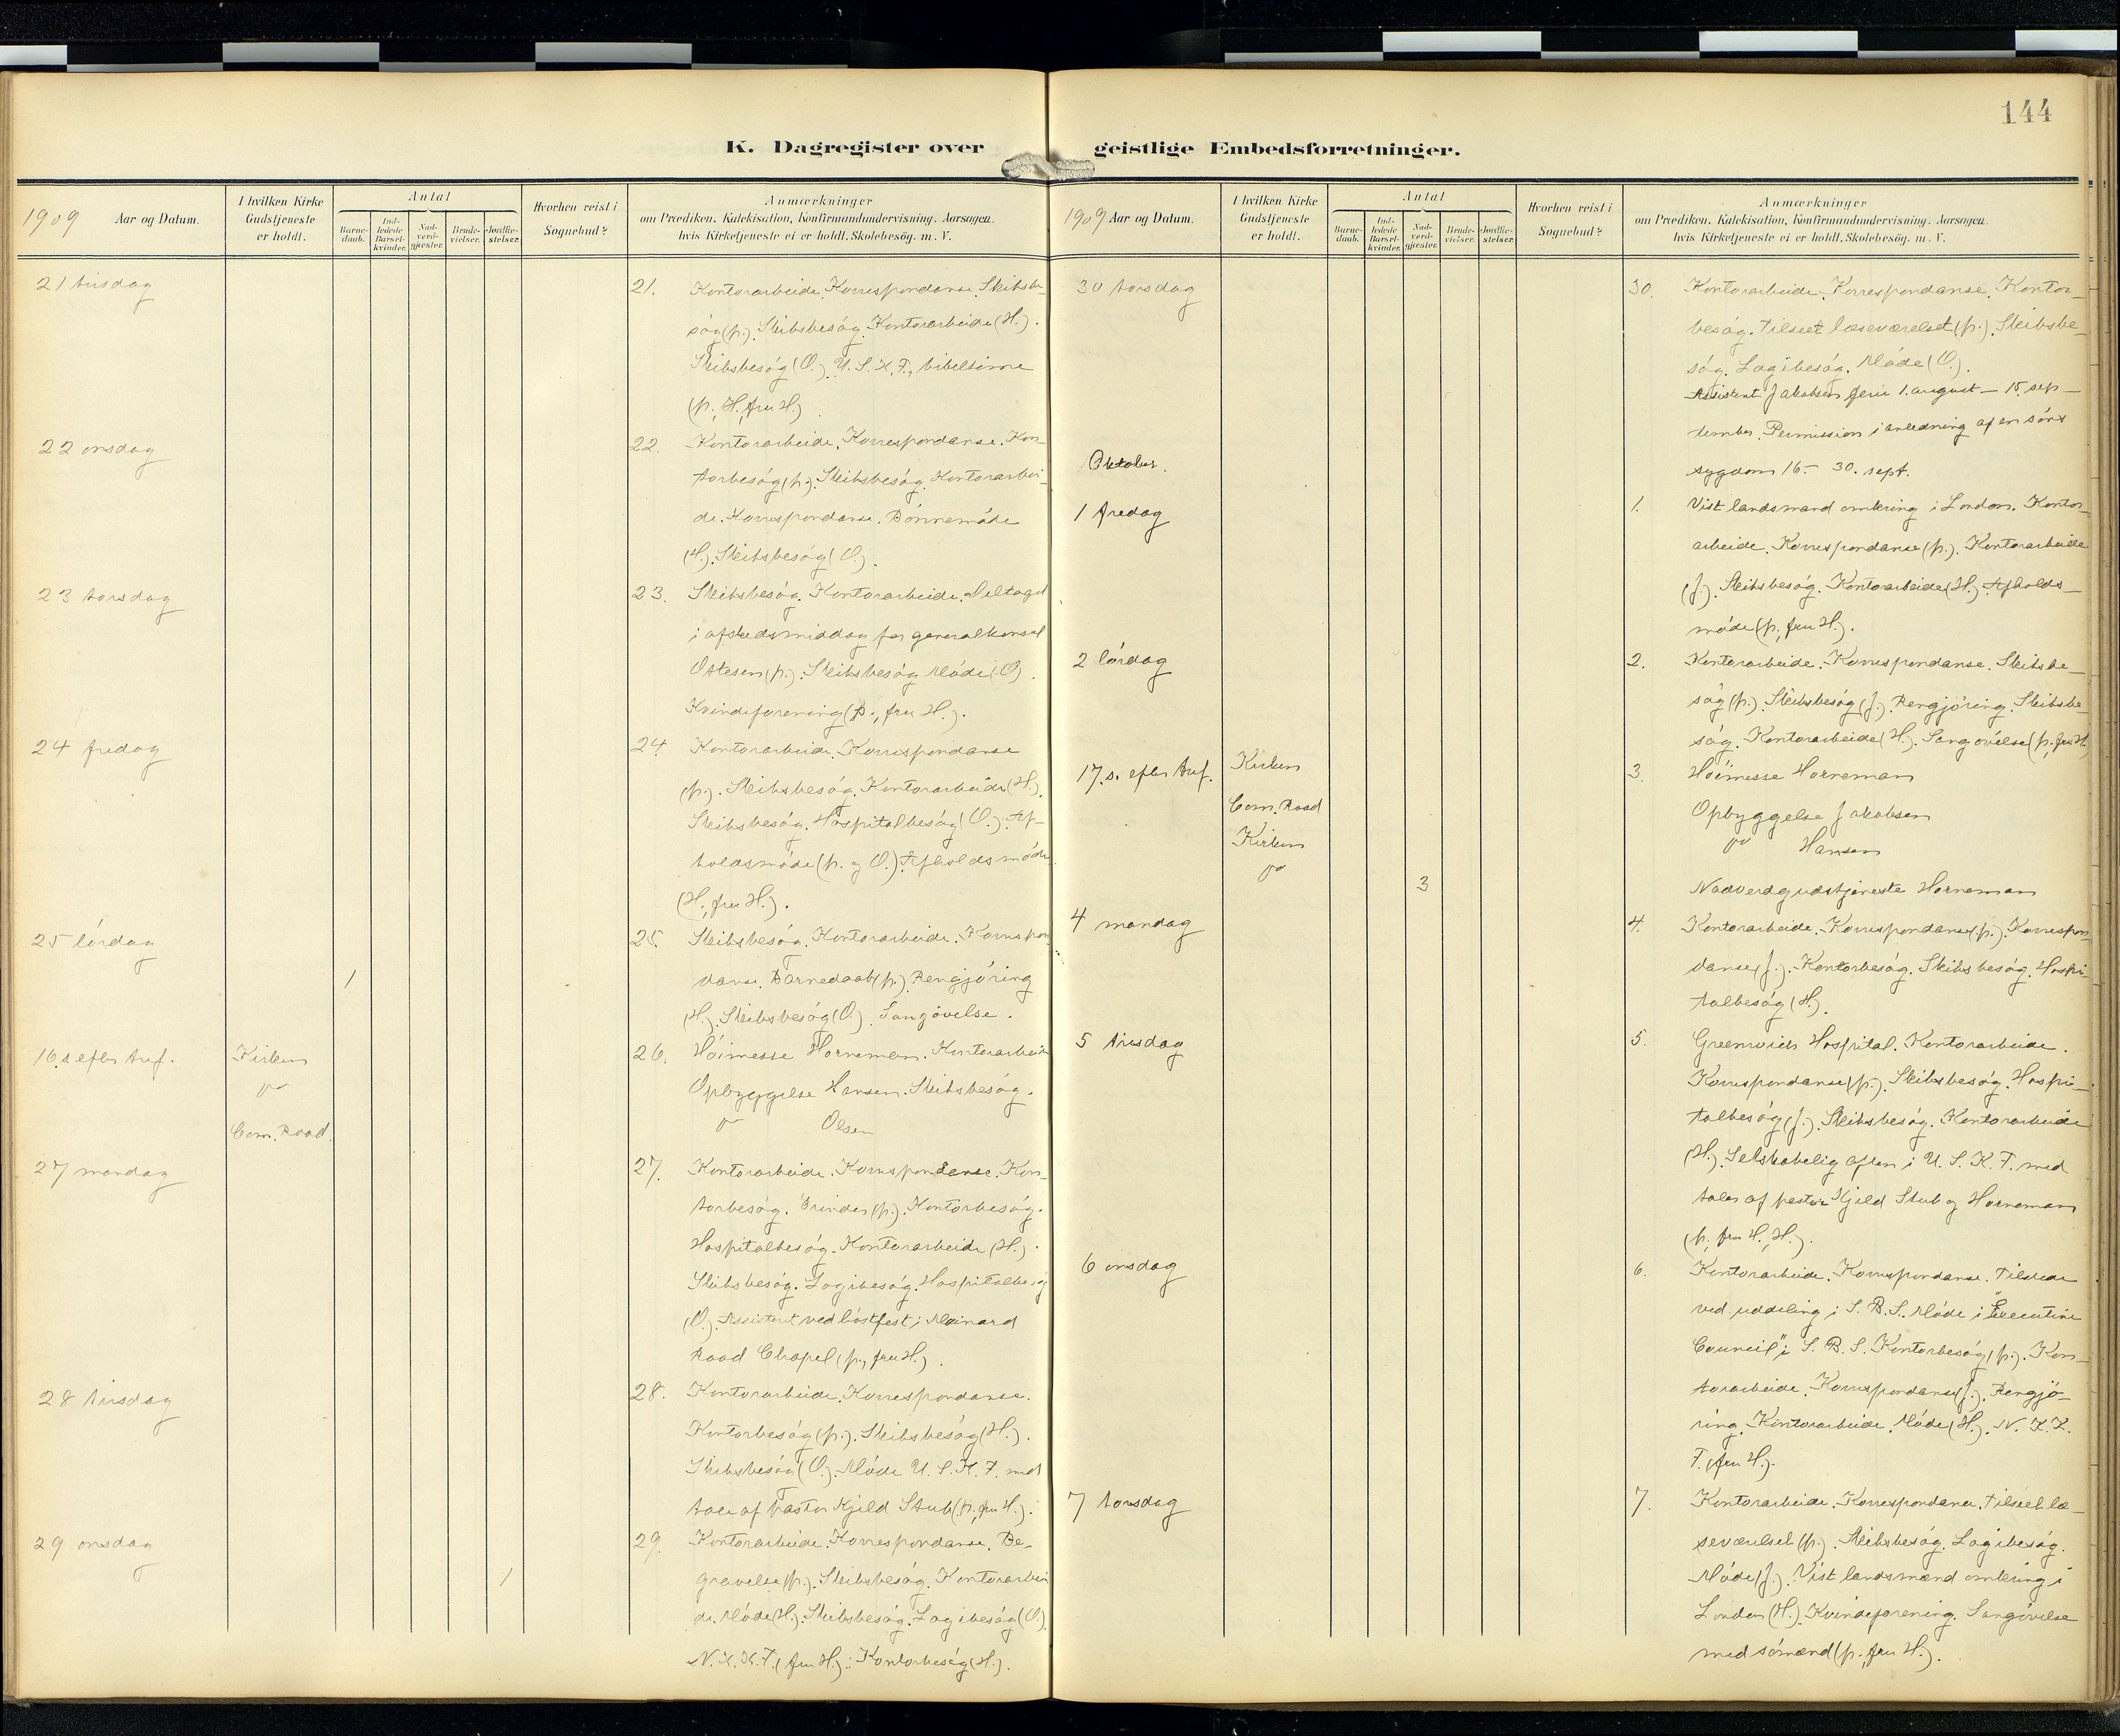 144
K. Dagregister over geistlige Embedsforretninger.
1909 Aar og Datum.
I hvilken Kirke Gudstjeneste er holdt.
Antal
Barnedaab.
Indledede Barselkvinder.
Nadverdgjæster.
Brudevielser.
Jordfæstelser.
Hvorhen reist i Sognebud?
Anmærkninger
om Prædiken, Katekisation, Konfirmandundervisning. Aarsagen,
hvis Kirketjeneste ei er holdt. Skolebesög. m. V.
21 tirsdag
21. Kontorarbeide. Korrespondanse. Skibsbe-
søg (p.). Skibsbesøg. Kontorarbeide (H.).
Skibsbesøg (O.). U. S. K. F., bibeltime
(p., H., fru H.).
22 onsdag
22. Kontorarbeide. Korrespondanse. Kon-
torbesøg (p.). Skibsbesøg. Kontorarbei-
de. Korrespondanse. Bønnemøde
(H.). Skibsbesøg (O.).
23 torsdag
23. Skibsbesøg. Kontorarbeide. Deltaget
i afskedsmiddag for generalkonsul
Ottesen (p.). Skibsbesøg. Møde (O.).
Kvindeforening (p., fru H.).
24 fredag
24. Kontorarbeide. Korrespondanse
(p.). Skibsbesøg. Kontorarbeide (H.).
Skibsbesøg. Hospitalbesøg (O.). Af-
holdsmøde (p. og O.). Afholdsmøde
(H., fru H.).
25 lørdag
25. Skibsbesøg. Kontorarbeide. Korrespon-
1
danse. Barnedaab (p.). Rengjøring
(H.). Skibsbesøg (O.). Sangøvelse.
16. s. efter tref. Kirken
26. Høimesse Horneman. Kontorarbeide
Opbyggelse Hansen. Skibsbesøg.
Com. Road.
Olsen
27 mandag
27. Kontorarbeide. Korrespondanse. Kon-
torbesøg. Erinder (p.). Kontorbesøg.
Hospitalbesøg. Kontorarbeide (H.).
Skibsbesøg. Logibesøg. Hospitalbesøg
(O.). Assisteret ved høstfest i Mainard
Road Chapel (p., fru H.).
28 tirsdag
28. Kontorarbeide. Korrespondanse.
Kontorbesøg (p.). Skibsbesøg (H.).
Skibsbesøg (O.). Møde U. S. K. F. med
tale af pastor Kjeld Stub (p., fru H.).
29 onsdag
29. Kontorarbeide. Korrespondanse. Be-
1
gravelse (p.). Skibsbesøg. Kontorarbei-
de. Møde (H.). Skibsbesøg. Logibesøg (O.).
N. K. K. F. (fru H.). Kontorbesøg (H.).
1909 Aar og Datum.
I hvilken Kirke Gudstjeneste er holdt.
Antal
Barnedaab.
Indledede Barselkvinder.
Nadverdgjæster.
Brudevielser.
Jordfæstelser.
Hvorhen reist i Sognebud?
Anmærkninger
om Prædiken, Katekisation, Konfirmandundervisning. Aarsagen,
hvis Kirketjeneste ei er holdt. Skolebesög. m. V.
30 torsdag
30. Kontorarbeide. Korrespondanse. Kontor-
besøg. Tilseet læseværelset (p.). Skibsbe-
søg. Logibesøg. Møde (O.).
Assistent Jakobsen ferie 1. august – 15. sep-
tember. Permission i anledning af en søns
sygdom 16. – 30. sept.
Oktober.
1 fredag
1. Vist landsmænd omkring i London. Kontor-
arbeide. Korrespondanse (p.). Kontorarbeide
(J.). Skibsbesøg. Kontorarbeide (H.). Afholds-
møde (p., fru H.).
2 lørdag
2. Kontorarbeide. Korrespondanse. Skibsbe-
søg (p.). Skibsbesøg (J.). Rengjøring. Skibsbe-
søg. Kontorarbeide (H.). Sangøvelse (p., fru H.)
17. s. efter tref. Kirken
3. Høimesse Horneman
Com. Road
Opbyggelse Jakobsen
Kirken
Hansen
3
Nadverdgudstjeneste Horneman
4 mandag
4. Kontorarbeide. Korrespondanse (p.). Korrespon-
danse (J.). Kontorbesøg. Skibsbesøg. Hospi-
talbesøg (H.).
5 tirsdag
5. Greenwich Hospital. Kontorarbeide.
Korrespondanse (p.). Skibsbesøg. Hospi-
talbesøg (J.). Skibsbesøg. Kontorarbeide
(H.). Selskabelig aften i U. S. K. F. med
taler af pastor Kjeld Stub og Horneman
(p., fru H., H.).
6 onsdag
6. Kontorarbeide. Korrespondanse. Tilstede
ved uddeling i S. B. S. Møde i "Executive
Council" i S. B. S. Kontorbesøg (p.). Kon-
torarbeide. Korrespondanse (J.). Rengjø-
ring. Kontorarbeide. Møde (H.). N. K. K.
F. (fru H.).
7 torsdag
7. Kontorarbeide. Korrespondanse. Tilseet læ-
seværelset (p.). Skibsbesøg. Logibesøg.
Møde (J.). Vist landsmænd omkring i
London (H.). Kvindeforening. Sangøvelse
med sømænd (p., fru H.).